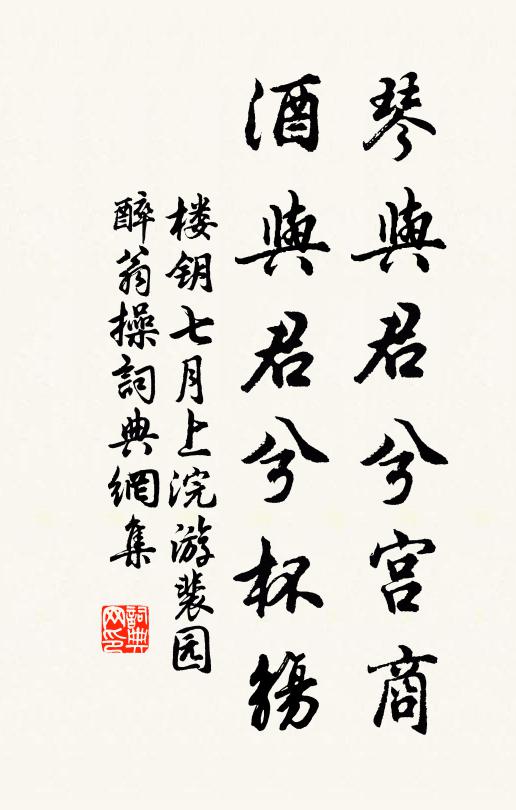 琴與君兮宫商
酒與君兮杯觴
楼钥七月上浣游裴园
醉翁操詞典網集
詞典
网印